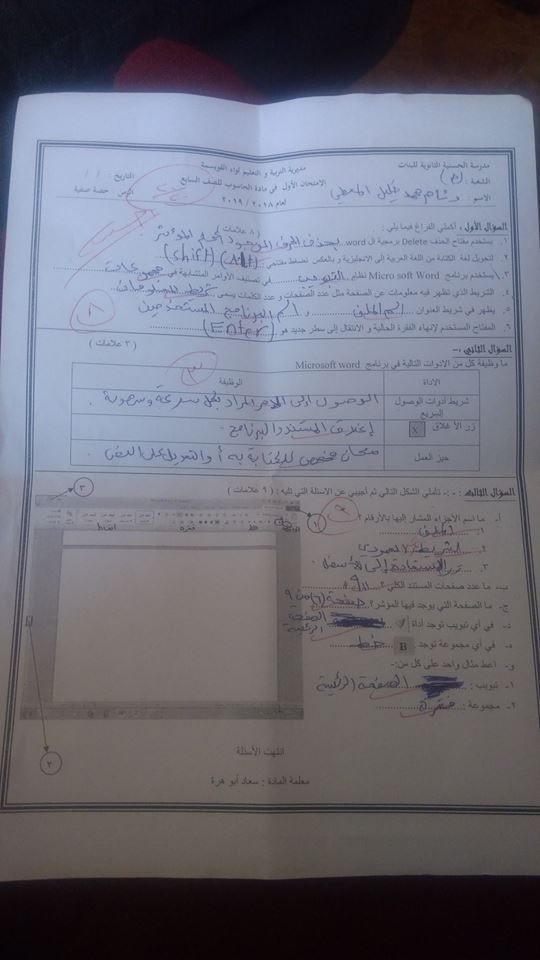 مدرسة الحسنية الثانوية للبنات
مديرية التربية و التعليم لواء القويسمة
التاريخ : / /
الشعبة: ( )
الامتحان الأول في مادة الحاسوب للصف السابع
الاسم: محمد خليل
لعام ٢٠١٨ / ٢٠١٩
الزمن : حصة صفية
السؤال الأول : أكملي الفراغ فيما يلي : ( ٨ علامات )
١. يستخدم مفتاح الحذف Delete برمجية ال word بحذف الحرف الموجود أمام المؤشر
٢. لتحويل لغة الكتابة من اللغة العربية إلى الانجليزية و بالعكس نضغط مفتاحي (Alt) (Shift)
٣. يستخدم برنامج Micro soft Word نظام التبويب في تصنيف الأوامر المتشابهة في مجموعات
٤. الشريط الذي تظهر فيه معلومات عن الصفحة مثل عدد الصفحات و عدد الكلمات يسمى شريط المعلومات
٥. يظهر في شريط العنوان اسم الملف و اسم البرنامج المستخدم
٦. المفتاح المستخدم لإنهاء الفقرة الحالية و الانتقال إلى سطر جديد هو (Enter)
٨
السؤال الثاني :-
( ٣ علامات )
ما وظيفة كل من الادوات التالية في برنامج Microsoft word
٣
الأداة
الوظيفة
شريط أدوات الوصول السريع
الوصول إلى الأمر المراد بكل سرعة وسهولة .
زر الأغلاق X
إغلاق المستند والبرنامج .
حيز العمل
مكان مخصص للكتابة به أو التعديل على النص .
السؤال الثالث :- تأملي الشكل التالي ثم أجيبي عن الاسئلة التي تليه : ( ٩ علامات )
أ- ما اسم الأجزاء المشار إليها بالأرقام ؟
١. ملف
٢. الشريط العمودي
٣.
ب- ما عدد صفحات المستند الكلي ؟ ٩
ج- ما الصفحة التي يوجد فيها المؤشر ؟ صفحة (٦) من ٩
د- في أي تبويب توجد أداة الصفحة الرئيسية
ه- في أي مجموعة توجد B خط
و- اعط مثال واحد على كل من:-
١- تبويب : الصفحة الرئيسية
٢- مجموعة : فقرة
١
٢
٣
انتهت الأسئلة
معلمة المادة : سعاد أبو هرة